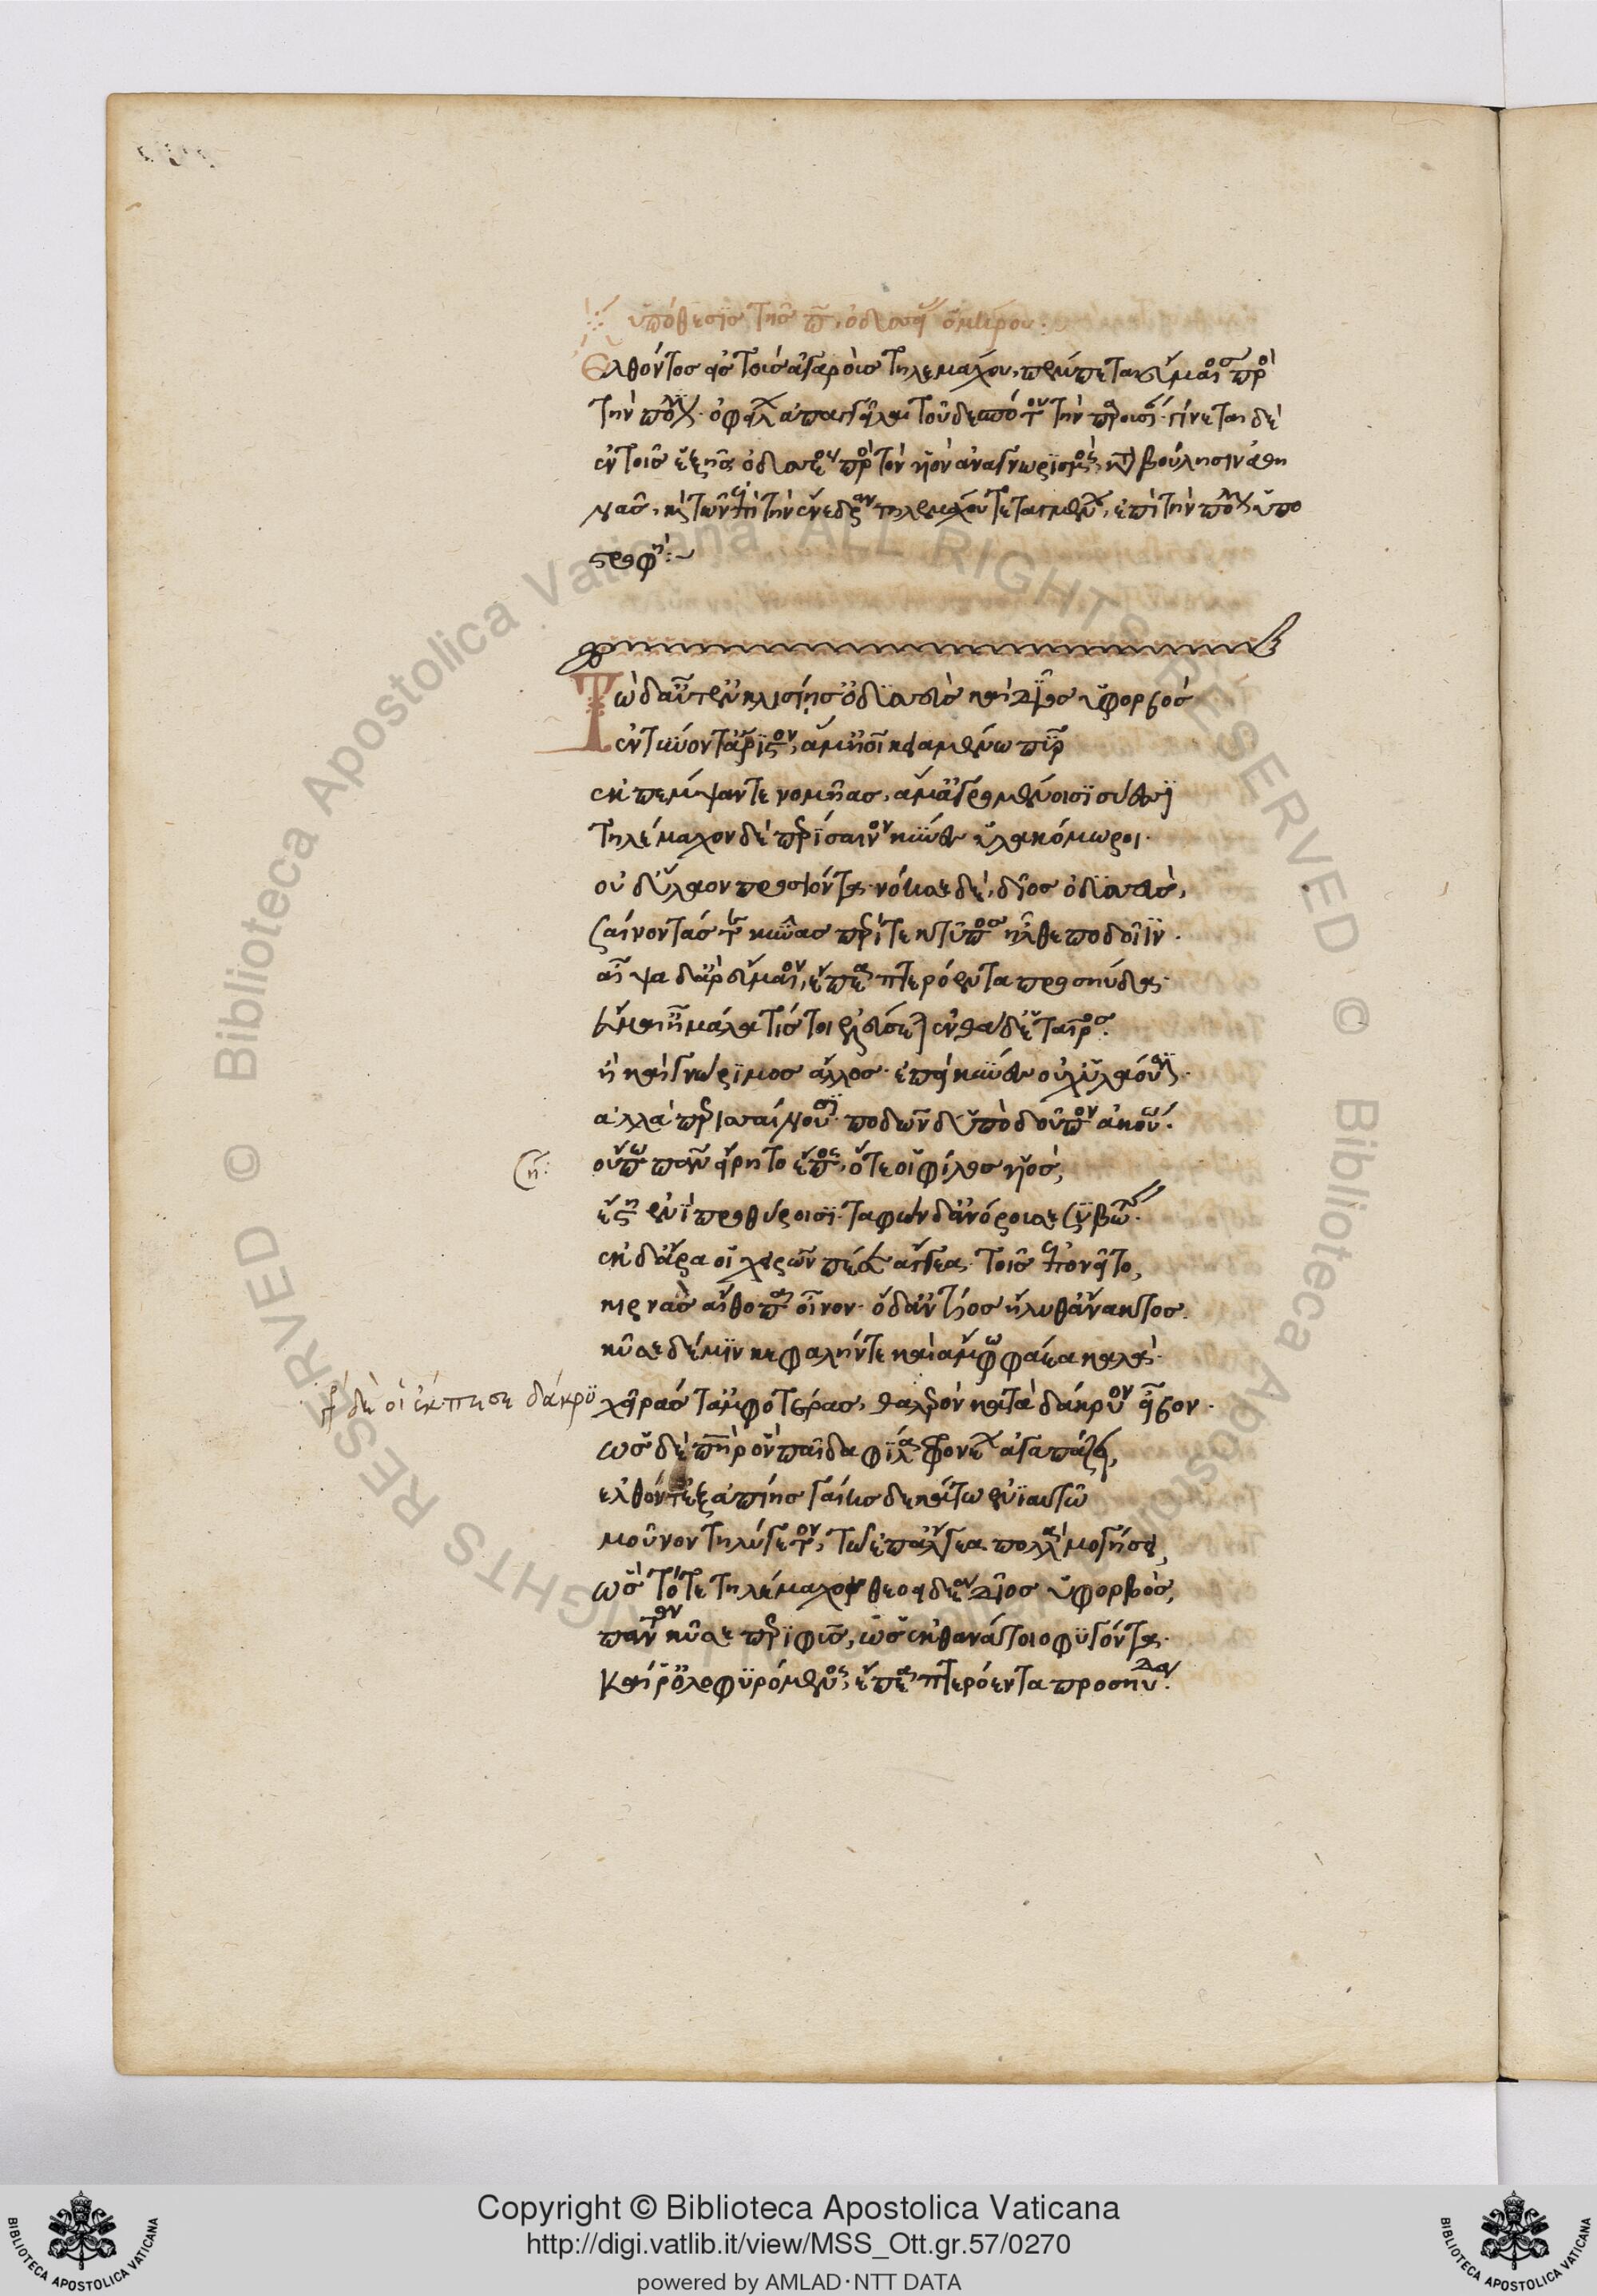 ὑπόθεσις τῆς π ὀδυσσ ὁμήρου.
Ἐλθόντος εἰς τοὺς ἀγροὺς τηλεμάχου, πέμπεται εὔμαιος πρὸς
τὴν πόλιν. ὀφείλων ἀπαγγεῖλαι τοῦ δεσπότου τὴν παρουσίαν. γίνεται δὲ
ἐν τοῖς ἑξῆς ὀδυσσέως πρὸς τὸν υἱὸν ἀναγνωρισμὸς, κατὰ βούλησιν ἀθη
νᾶς, καὶ τῶν ἐπὶ τὴν ἐνέδραν τηλεμάχου τεταγμένων, ἐπὶ τὴν πόλιν ὑπο
στροφή:~
Τὼ δ' αὖτ' ἐν κλισίῃς ὀδϋσσεὺς καὶ δῖος ὑφορβὸς
ἐντύοντ' ἄριστον, ἅμ' ἠοῖ κειαμένω πῦρ
ἔκπεμψάν τε νομῆας, ἅμ' ἀγρομένοισι σύεσσι
Τηλέμαχον δὲ περίσαινον κύνες ὑλακόμωροι.
οὐδ' ὕλαον προσιόντα. νόησε δὲ, δῖος ὀδυσσεὺς,
σαίνοντάς τε κύνας περί τε κτύπος ἦλθε ποδοῖϊν.
αἶψα δ' ἄρ' εὔμαιον, ἔπεα πτερόεντα προσηύδα.
εὔμαι' ἦ μάλα τίς τοι ἐλεύσεται ἐνθάδ' ἑταῖρος.
ἢ καὶ γνώριμος ἄλλος. ἐπεὶ κύνες οὐχ' ὑλάουσιν.
ἀλλὰ περισσαίνουσι. ποδῶν δ' ὑπὸ δοῦπον ἀκούω.
οὔπω πᾶν εἴρητο ἔπος, ὅτε οἱ φίλος υἱὸς,
ἔστη ἐνὶ προθύροισι. ταφὼν δ' ἀνόρουσε συβώτης.
ἐκ δ' ἄρα οἱ χειρῶν πέσεν ἄγγεα. τοῖς ἐπονεῖτο,
κιρνὰς αἴθοπα οἶνον. ὁ δ' ἀντίος ἤλυθ' ἄνακτος.
κῦσε δέ μιν κεφαλήν τε καὶ ἄμφω φάεα καλὰ.
χεῖράς τ' ἀμφοτέρας, θαλερὸν κατὰ δάκρυον εἶβον.
ὡς δὲ πατὴρ ὃν παῖδα φίλα φρονέων ἀγαπάζει,
ἐλθόντ' ἐξ ἀπίης γαίης δεκάτω ἐνιαυτῶ
μοῦνον τηλύγετον, τῶ ἐπ' ἄλγεα πολλὰ μογήσει,
ὣς τότε τηλέμαχον θεοειδέα δῖος ὑφορβὸς,
πάντα κῦσε περιφὺς, ὡς ἐκ θανάτοιο φυγόντα.
καί ῥ' ὀλοφυρόμενος, ἔπεα πτερόεντα προσηύδα.
δέ οἱ ἔκπεσε δάκρυ